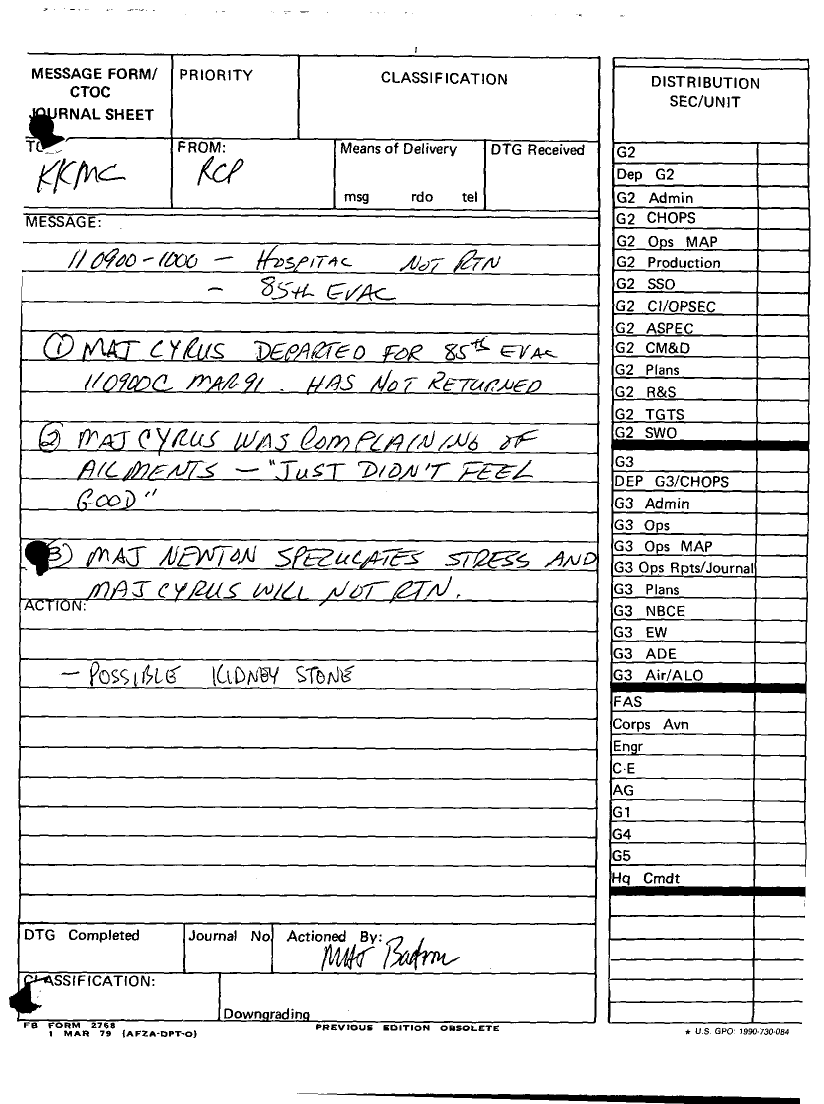 MESSAGE FORM/
CTOC
JOURNAL SHEET
PRIORITY
CLASSIFICATION
DISTRIBUTION
SEC/UNIT
TO:
KKMC
FROM:
RCP
Means of Delivery
msg rdo tel
DTG Received
MESSAGE:
110900-1000 - HOSPITAL NOT RTN
- 85th EVAC
① MAJ CYRUS DEPARTED FOR 85th EVAC
110900C MAR 91. HAS NOT RETURNED
② MAJ CYRUS WAS COMPLAINING OF
AILMENTS - "JUST DIDN'T FEEL
GOOD"
③ MAJ NEWTON SPEZULATES STRESS AND
MAJ CYRUS WILL NOT RTN.
ACTION:
- POSSIBLE KIDNEY STONE
DTG Completed
Journal No.
Actioned By:
MAJ
CLASSIFICATION:
Downgrading
FB FORM 2768
1 MAR 79 (AFZA-DPT-O)
PREVIOUS EDITION OBSOLETE
G2
Dep G2
G2 Admin
G2 CHOPS
G2 Ops MAP
G2 Production
G2 SSO
G2 CI/OPSEC
G2 ASPEC
G2 CM&D
G2 Plans
G2 R&S
G2 TGTS
G2 SWO
G3
DEP G3/CHOPS
G3 Admin
G3 Ops
G3 Ops MAP
G3 Ops Rpts/Journal
G3 Plans
G3 NBCE
G3 EW
G3 ADE
G3 Air/ALO
FAS
Corps Avn
Engr
C-E
AG
G1
G4
G5
Hq Cmdt
★ U.S. GPO: 1990-730-084